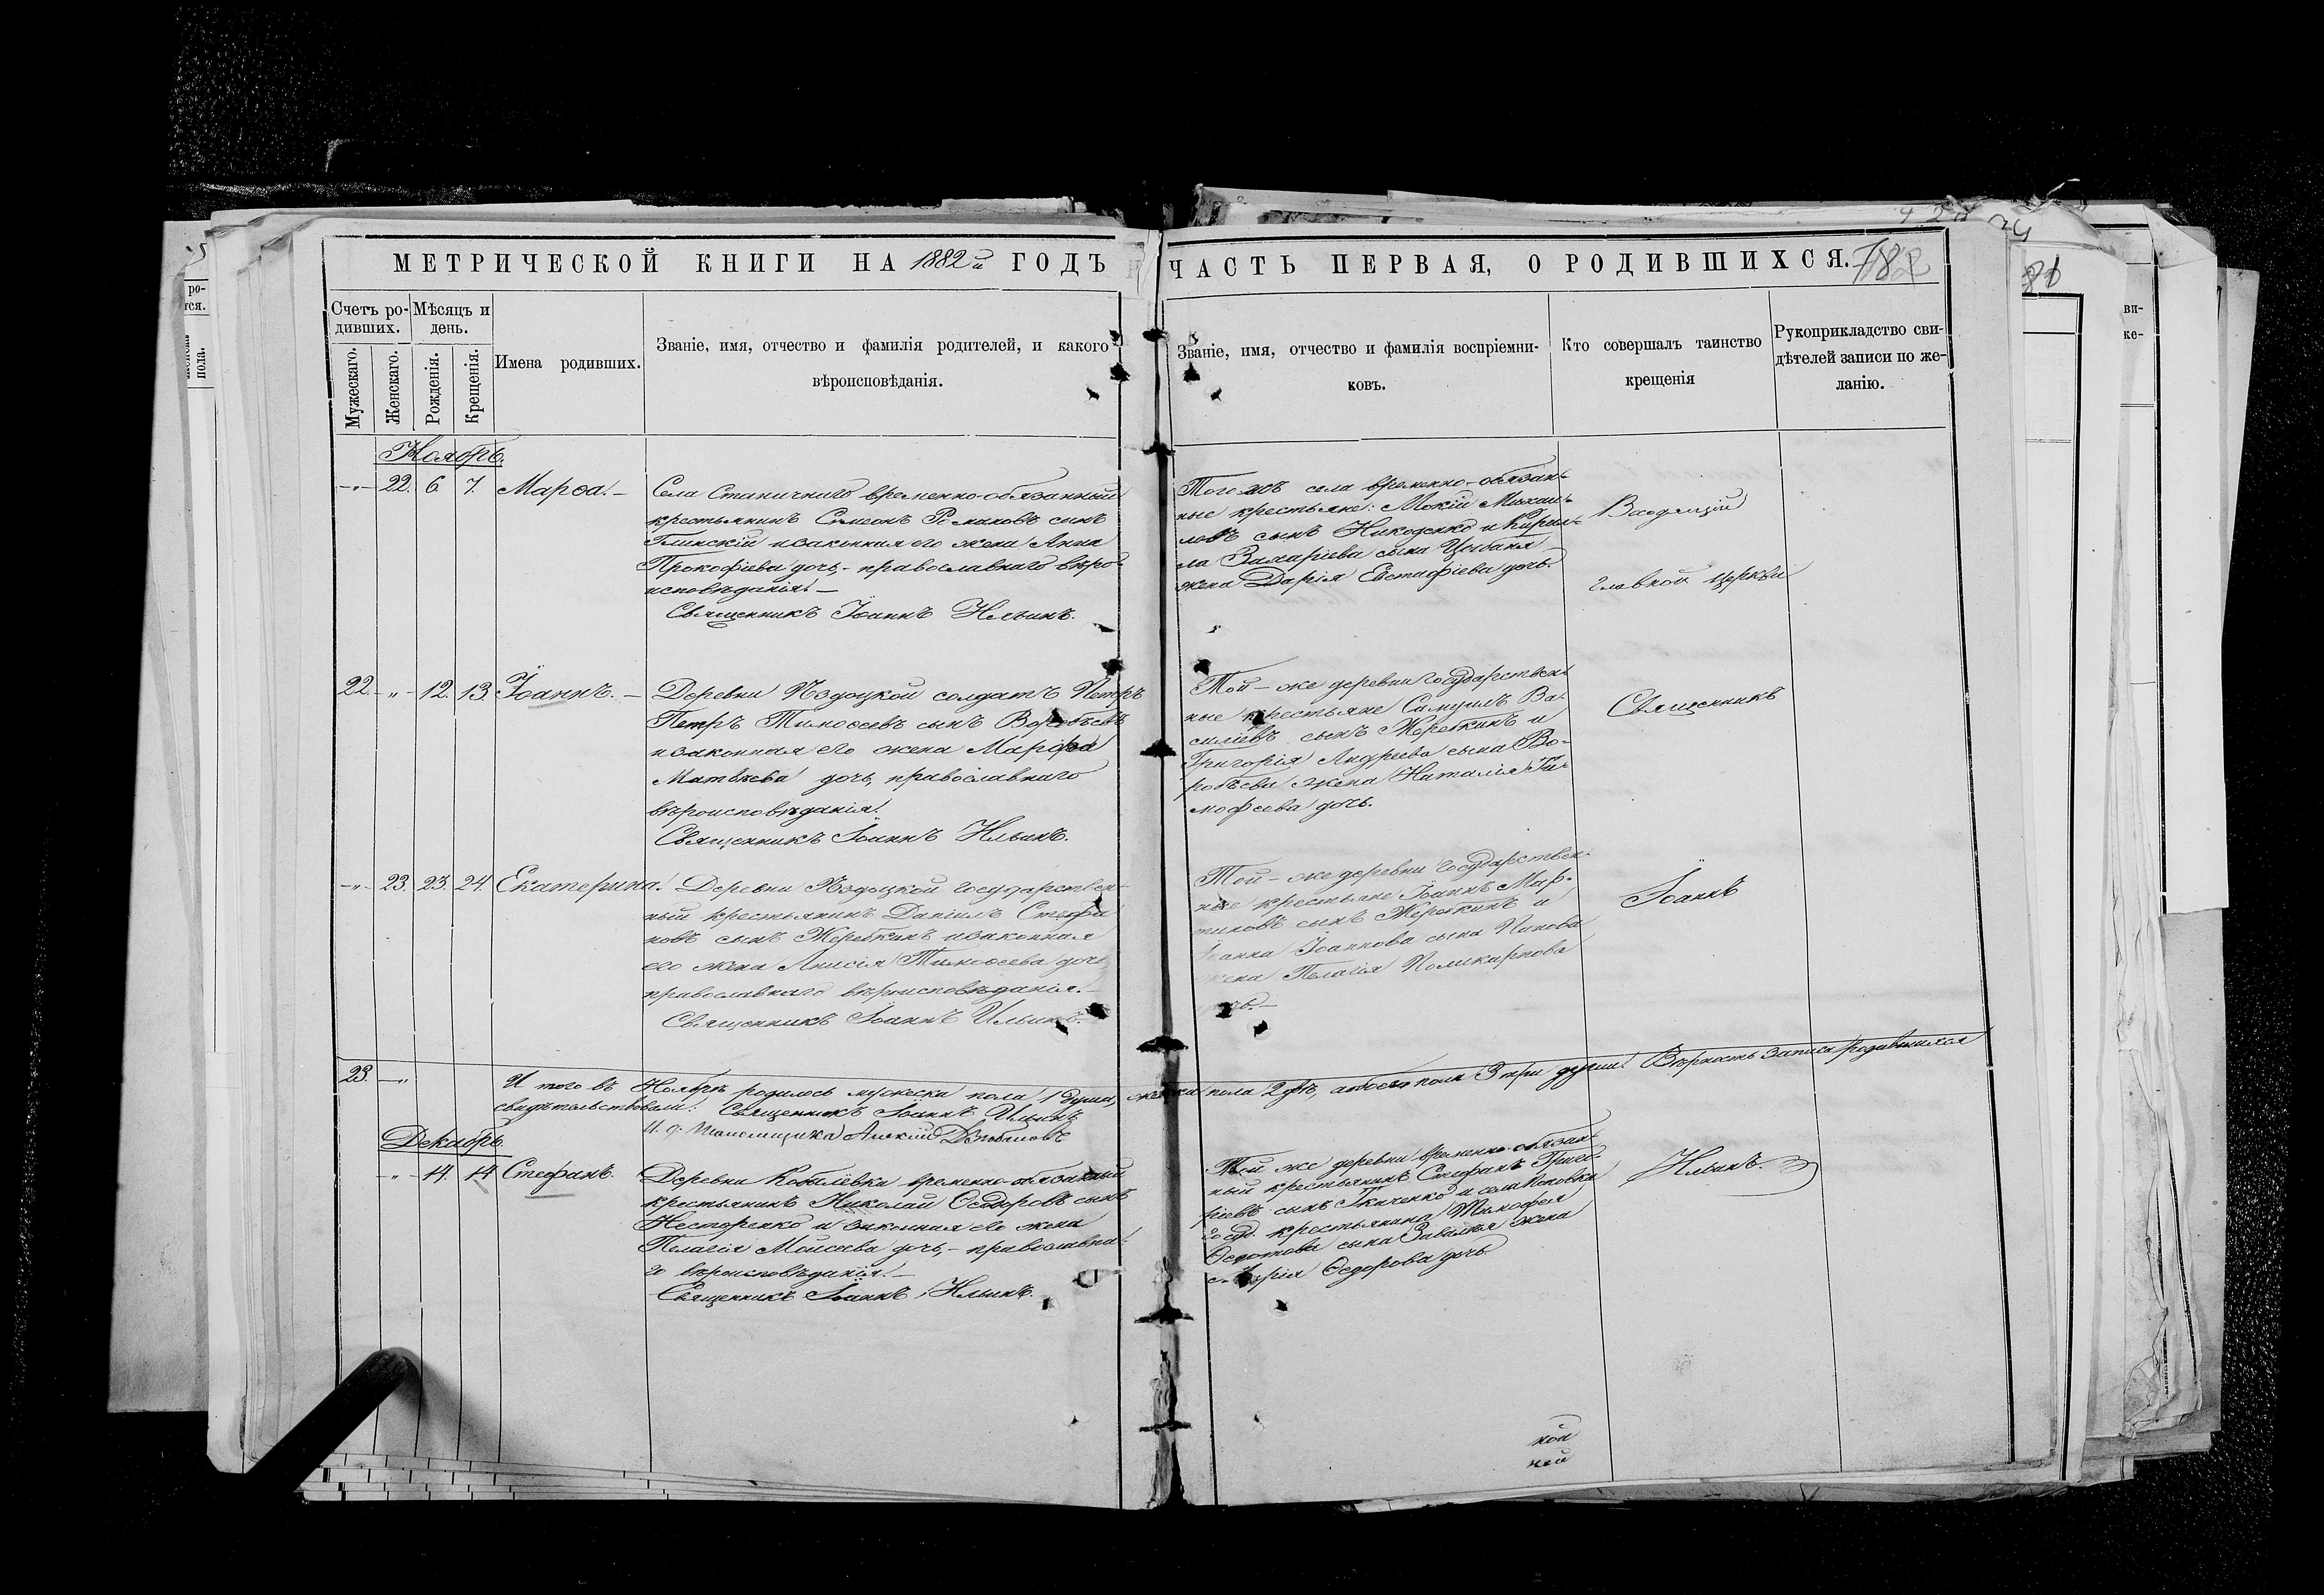 МЕТРИЧЕСКОЙ КНИГИ НА 1882й ГОДЪ
ЧАСТЬ ПЕРВАЯ, О РОДИВШИХСЯ.
Счетъ ро-
дивших.
Мѣсяцъ и
день.
Мужескаго.
Женскаго.
Рожденія.
Крещенія.
Имена родивших.
Званіе, имя, отчество и фамилія родителей, и какого
вѣроисповѣданія.
Званіе, имя, отчество и фамилія воспріемни-
ковъ.
Кто совершалъ таинство
крещенія
Рукоприкладство сви-
дѣтелей записи по же-
ланію.
Ноябрь.
-"- 22. 6. 7. Марѳа. -
Села Станичнаго временно-обязанный
крестьянинъ Симеонъ Романовъ сынъ
Глинскій и законная его жена Анна
Прокофіева дочь, - православнаго вѣро-
исповѣданія. -
Священникъ Іоаннъ Ильинъ.
Того-жъ села временно-обязан-
ные крестьяне: Мокій Михаи-
ловъ сынъ и Кирил-
ла Захаріева сына Цыбаня
жена Дарія Евстафіева дочь.
главной церкви
22. -"- 12. 13. Іоаннъ. -
Деревни солдатъ Петръ
Петръ Тимоѳеевъ сынъ Воробьевъ
и законная его жена Марѳа
Матвѣева дочь, православнаго
вѣроисповѣданія.
Священникъ Іоаннъ Ильинъ.
Той-же деревни государствен-
ные крестьяне Самуилъ Ва-
силіевъ сынъ Жеребкинъ и
Григорія Андреева сына Во-
робьева жена Наталія Ти-
мофеева дочь.
Священникъ
-"- 23. 23. 24. Екатерина.
Деревни государствен-
ный крестьянинъ Даніилъ Стефа
новъ сынъ Жеребкинъ и законная
его жена Анисія Тимоѳеева дочь
православнаго вѣроисповѣданія. -
Священникъ Іоаннъ Ильинъ.
Той-же деревни государствен-
ные крестьяне Іоаннъ Мар-
тиновъ сынъ Жеребкинъ и
Іоанна Іоаннова сына Попова
жена Пелагія Поликарпова
Іоаннъ
23. -"
И того въ Ноябрѣ родилось мужеска пола 1 душа, женска пола 2 двѣ, а обоего пола 3 три души. Вѣрность записи родившихся
свидѣтельствовали: Священникъ Іоаннъ Ильинъ
И. д. Псаломщика Алексій
Декабрь.
-"- 14. 14. Стефанъ.
Деревни Кобылевки временно-обязанный
крестьянинъ Николай Ѳеодоровъ сынъ
Нестеренко и законная его жена
Пелагія Моисеева дочь, - православна-
го вѣроисповѣданія. -
Священникъ Іоаннъ Ильинъ.
Той же деревни временно-обязан-
ный крестьянинъ Стефанъ Григо-
ріевъ сынъ Ткаченко и села Поповки
госуд. крестьянина Тимофея
Ѳедотова сына жена
Марія Ѳедорова дочь
Ильинъ.
ной
ней